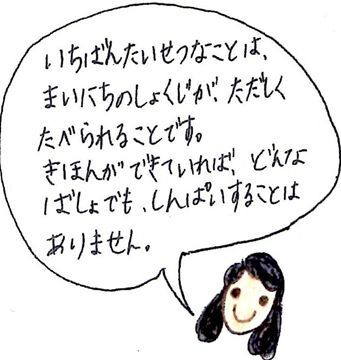 いちばんたいせつなことは、
まいにちのしょくじが、ただしく
たべられることです。
きほんができていれば、どんな
ばしょでも、しんぱいすることは
ありません。